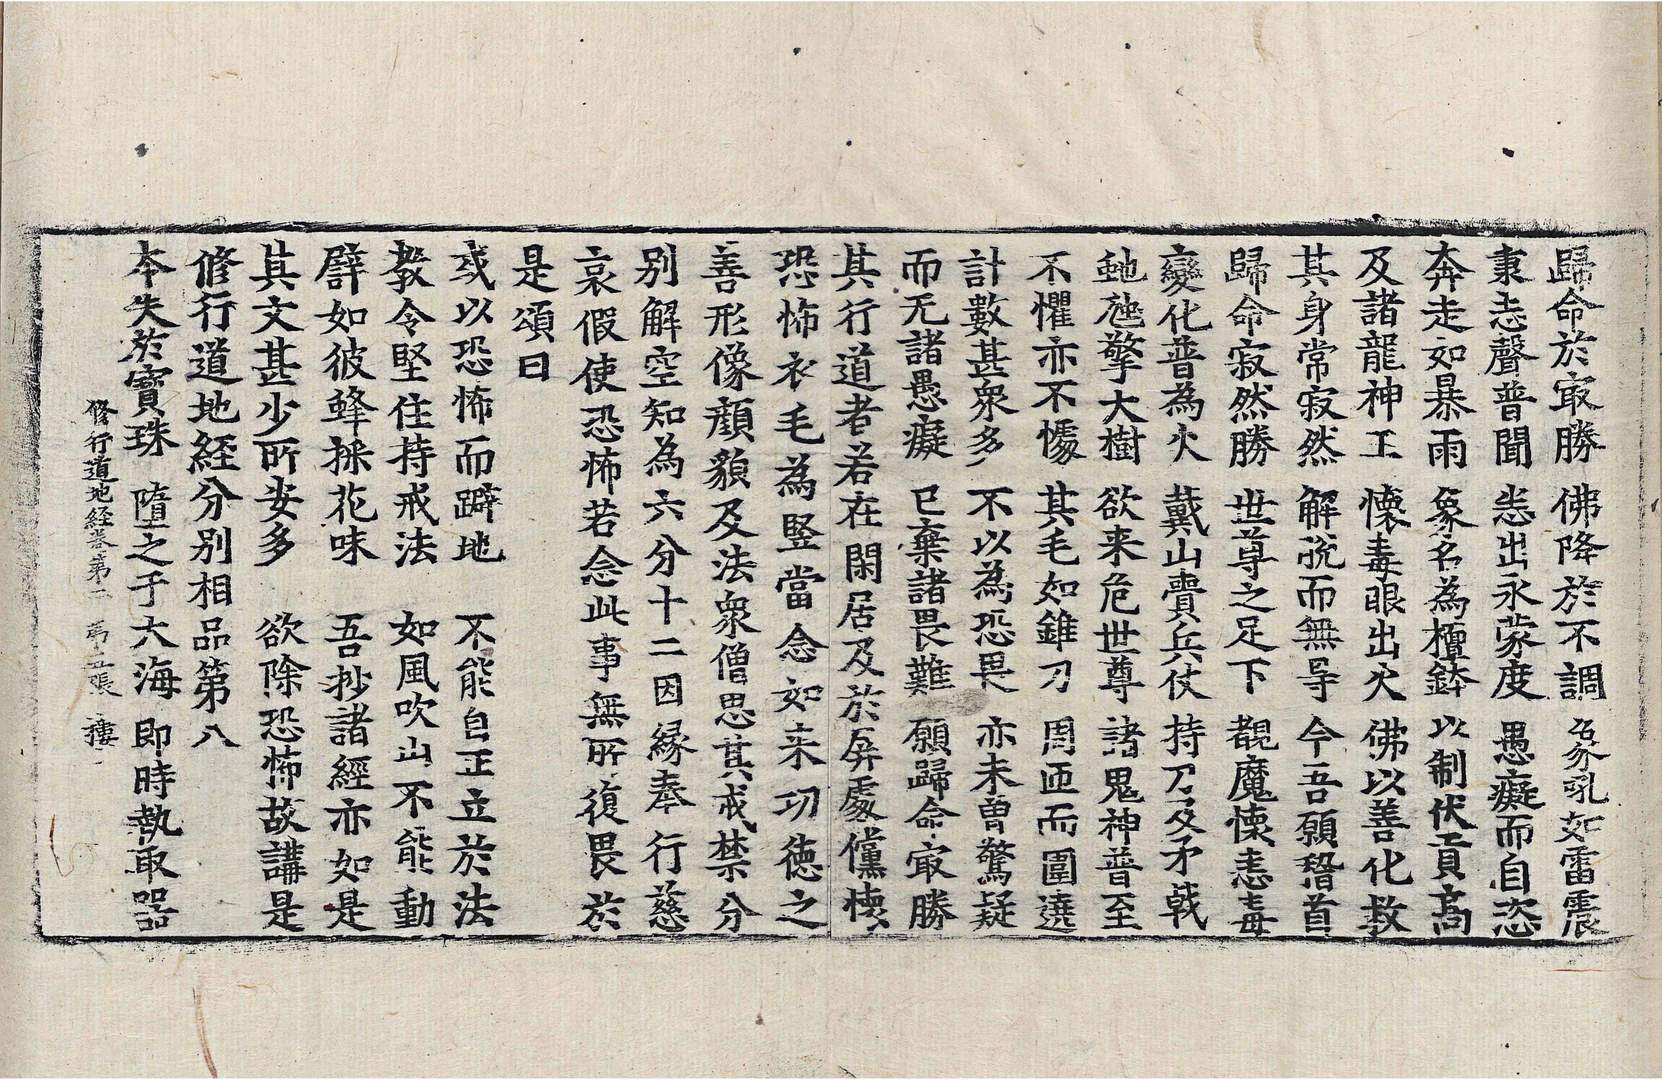 歸命於㝡勝　佛降於不調　象吼如雷震
東恚聲普聞　恙出永蒙度　愚癡而自恣
奔走如暴雨　象名為檀鉢　以制伏貢高
及諸龍神王　懷毒眼出火　佛以善化救
其身常寂然　解說而無㝵　今吾願稽首
歸命寂然勝　世尊之足下　覩魔懷恚毒
變化普為火　戴山賷兵仗　持刀及矛戟
虵虺擎大樹　欲来危世尊　諸鬼神普至
不懼亦不懅　其毛如錐刀　周迊而圍遶
計數甚衆多　不以為恐畏　亦未曽驚疑
而无諸愚癡　已棄諸畏難　願歸命㝡勝
其行道者若在閑居及於屏處儻懷
恐怖衣毛為竪當念如来功德之
善形像顔貌及法衆僧思其戒禁分
別解空知為六分十二因緣奉行慈
哀假使恐怖若念此事無所復畏於
是頌曰
或以恐怖而躃地　不能自正立於法
教令堅住持戒法　如風吹山不能動
譬如彼蜂採花味　吾抄諸經亦如是
其文甚少所安多　欲除恐怖故講是
修行道地経分別相品第八
本失於寶珠　墮之于大海　即時執取器
修行道地経卷第二　第五張　樓